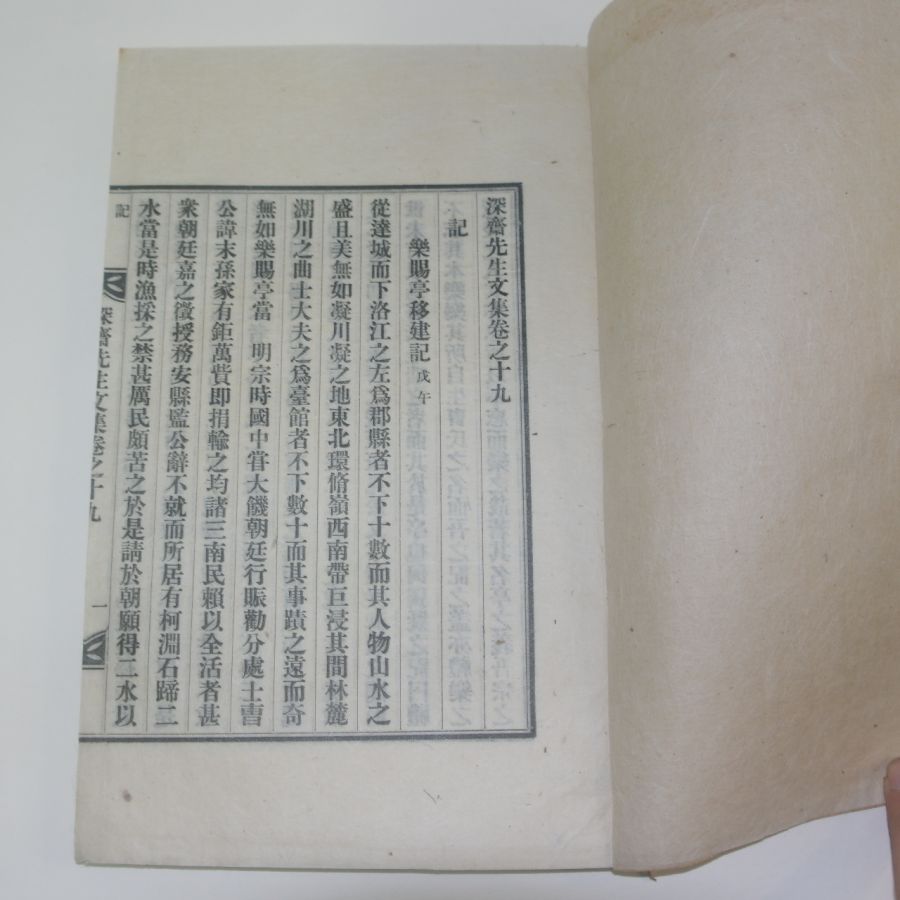 深齋先生文集卷之十九
記
樂賜亭移建記 戊午
從達城而下洛江之左爲郡縣者不下十數而其人物山水之
盛且美無如凝川凝之地東北環脩嶺西南帶巨浸其間林麓
湖川之曲士大夫之爲臺館者不下數十而其事蹟之遠而奇
無如樂賜亭當 明宗時國中甞大饑朝廷行賑勸分處士曺
公諱末孫家有鉅萬貲即捐輸之均諸三南民賴以全活者甚
衆朝廷嘉之徵授務安縣監公辭不就而所居有柯淵石蹄二
水當是時漁採之禁甚厲民頗苦之於是請於朝願得二水以
記
深齋先生文集卷之十九
一